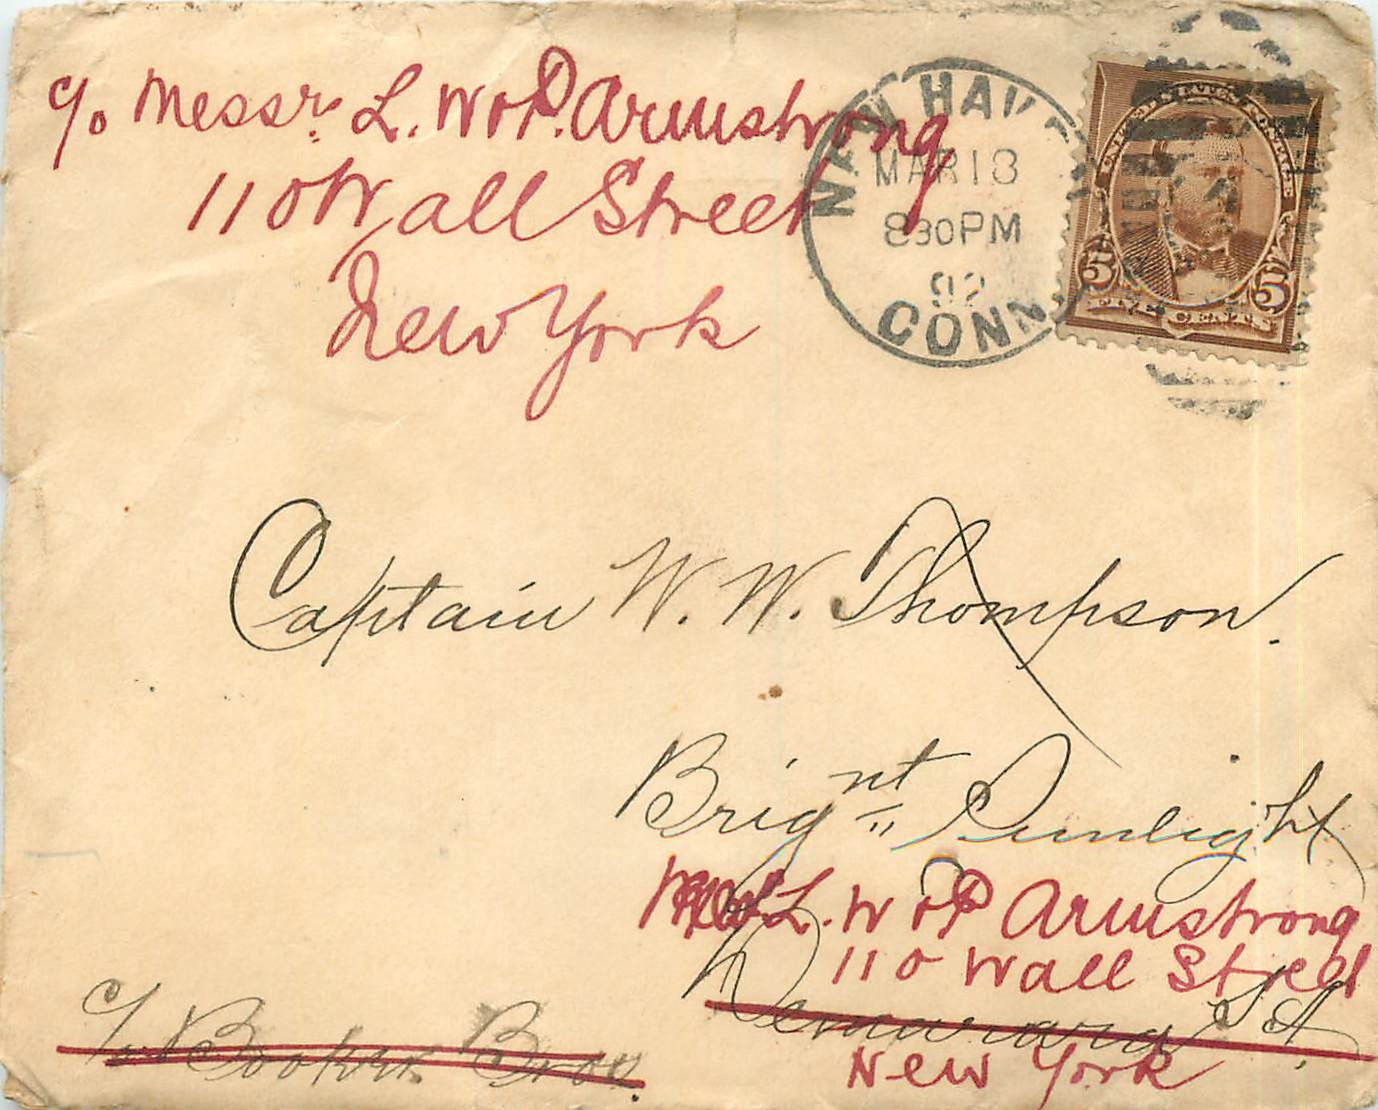 c/o Messrs L. W & P. Armstrong
110 Wall Street
New York
NEW HAVEN
MAR 18
830PM
92
CONN.
UNITED STATES POSTAGE
5 5
FIVE CENTS
Captain W. W. Thompson.
Brignt Sunlight
L. W & P Armstrong
110 Wall Street
Demerara S. A.
New York
c/o Booker Bros.